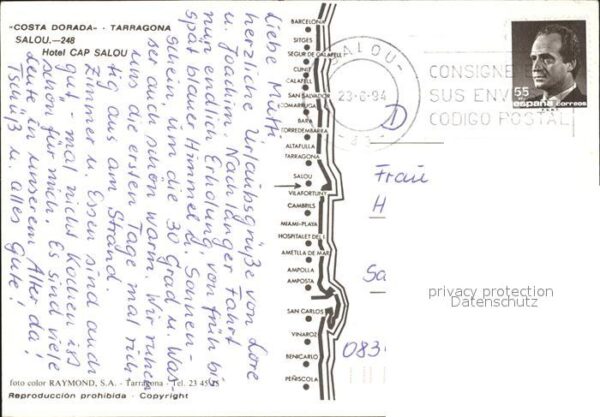 -COSTA DORADA- - TARRAGONA
SALOU.—248
Hotel CAP SALOU
Liebe Mutti
herzliche Urlaubsgrüße von Lore
u. Joachim. Nach langer Fahrt
nun endlich Erholung, von früh bis
spät blauer Himmel u. Sonnen-
schein, um die 30 Grad u. Was-
ser auch schön warm. Wir ruhen
uns die ersten Tage mal rich-
tig aus am Strand.
Zimmer u. Essen sind auch
gut - mal nicht kochen ist
schön für mich. Es sind viele
den in unserem Alter da!
Tschüß u. alles Gute!
foto color RAYMOND, S.A. - Tarragona - Tel. 23 45
Reproducción prohibida - Copyright
BARCELONA
SITGES
SEGUR DE CALAFELL
CUNIT
CALAFELL
SAN SALVADOR
COMARRUGA
BARA
TORREDEMBARRA
ALTAFULLA
TARRAGONA
SALOU
VILAFORTUNY
CAMBRILS
MIAMI-PLAYA
HOSPITALET DEL I.
AMETLLA DE MAR
AMPOLLA
AMPOSTA
SAN CARLOS
VINAROZ
BENICARLO
PEÑISCOLA
SALOU
23-6-94
43
CONSIGNE
SUS ENV
CODIGO POSTAL
55
españa correos
D
Frau
H
Sa
083
privacy protection
Datenschutz